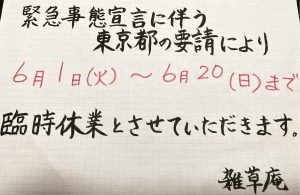 緊急事態宣言に伴う
東京都の要請により
6月1日(火)～6月20(日)まで
臨時休業とさせていただきます。
雑草庵